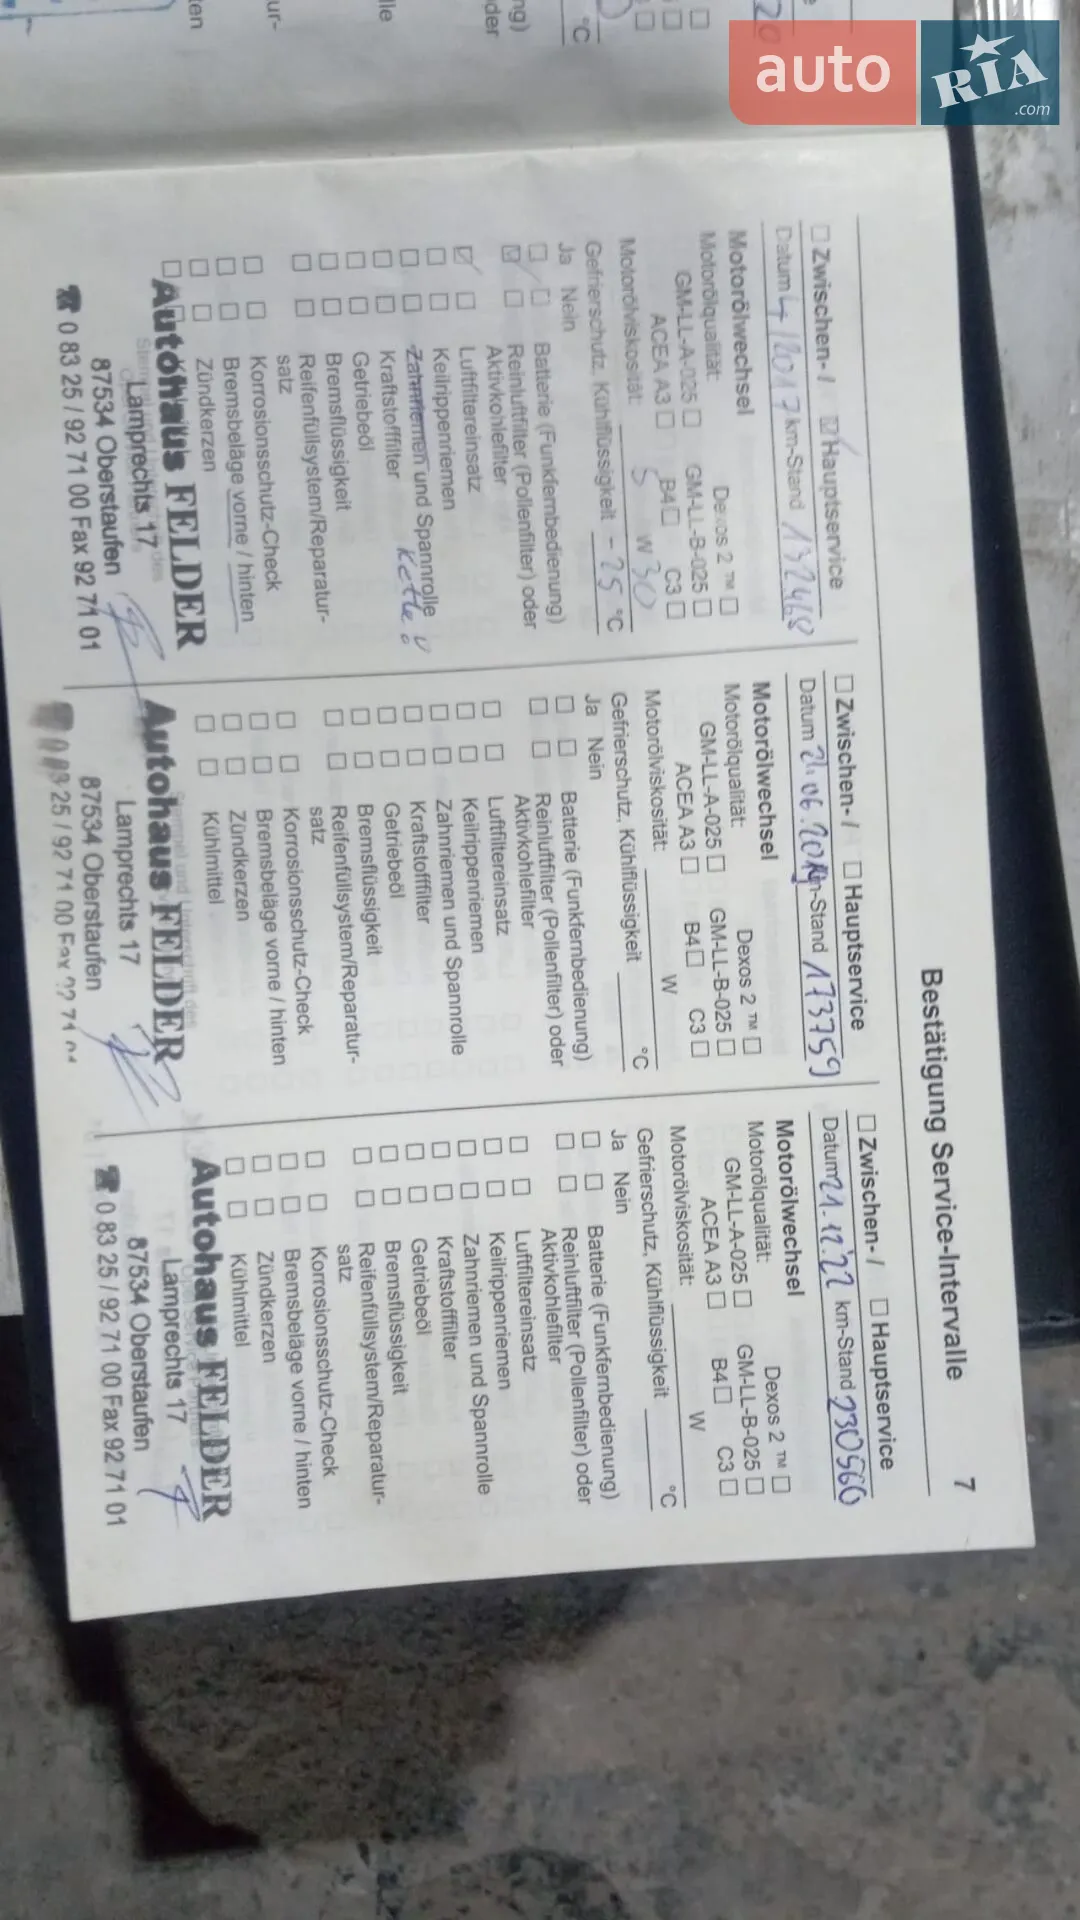 auto RIA .com
Bestätigung Service-Intervalle
7
Zwischen- / Hauptservice
Datum 4/2017 km-Stand 132468
Motorölwechsel
Dexos 2 ™
Motorölqualität:
GM-LL-A-025 GM-LL-B-025
ACEA A3 B4 C3
Motorölviskosität: 5 W 30
Gefrierschutz, Kühlflüssigkeit -25 °C
Ja Nein
Batterie (Funkfernbedienung)
Reinluftfilter (Pollenfilter) oder
Aktivkohlefilter
Luftfiltereinsatz
Keilrippenriemen
Zahnriemen und Spannrolle
Kette
Kraftstofffilter
Getriebeöl
Bremsflüssigkeit
Reifenfüllsystem/Reparatur-
satz
Korrosionsschutz-Check
Bremsbeläge vorne / hinten
Zündkerzen
Autohaus FELDER
Lamprechts 17
87534 Oberstaufen
☎ 0 83 25 / 92 71 00 Fax 92 71 01
Zwischen- / Hauptservice
Datum 21.06.2019 km-Stand 173759
Motorölwechsel
Dexos 2 ™
Motorölqualität:
GM-LL-A-025 GM-LL-B-025
ACEA A3 B4 C3
Motorölviskosität: W
Gefrierschutz, Kühlflüssigkeit °C
Ja Nein
Batterie (Funkfernbedienung)
Reinluftfilter (Pollenfilter) oder
Aktivkohlefilter
Luftfiltereinsatz
Keilrippenriemen
Zahnriemen und Spannrolle
Kraftstofffilter
Getriebeöl
Bremsflüssigkeit
Reifenfüllsystem/Reparatur-
satz
Korrosionsschutz-Check
Bremsbeläge vorne / hinten
Zündkerzen
Kühlmittel
Autohaus FELDER
Lamprechts 17
87534 Oberstaufen
☎ 0 83 25 / 92 71 00 Fax 92 71 01
Zwischen- / Hauptservice
Datum 21.12.22 km-Stand 230560
Motorölwechsel
Dexos 2 ™
Motorölqualität:
GM-LL-A-025 GM-LL-B-025
ACEA A3 B4 C3
Motorölviskosität: W
Gefrierschutz, Kühlflüssigkeit °C
Ja Nein
Batterie (Funkfernbedienung)
Reinluftfilter (Pollenfilter) oder
Aktivkohlefilter
Luftfiltereinsatz
Keilrippenriemen
Zahnriemen und Spannrolle
Kraftstofffilter
Getriebeöl
Bremsflüssigkeit
Reifenfüllsystem/Reparatur-
satz
Korrosionsschutz-Check
Bremsbeläge vorne / hinten
Zündkerzen
Kühlmittel
Autohaus FELDER
Lamprechts 17
87534 Oberstaufen
☎ 0 83 25 / 92 71 00 Fax 92 71 01